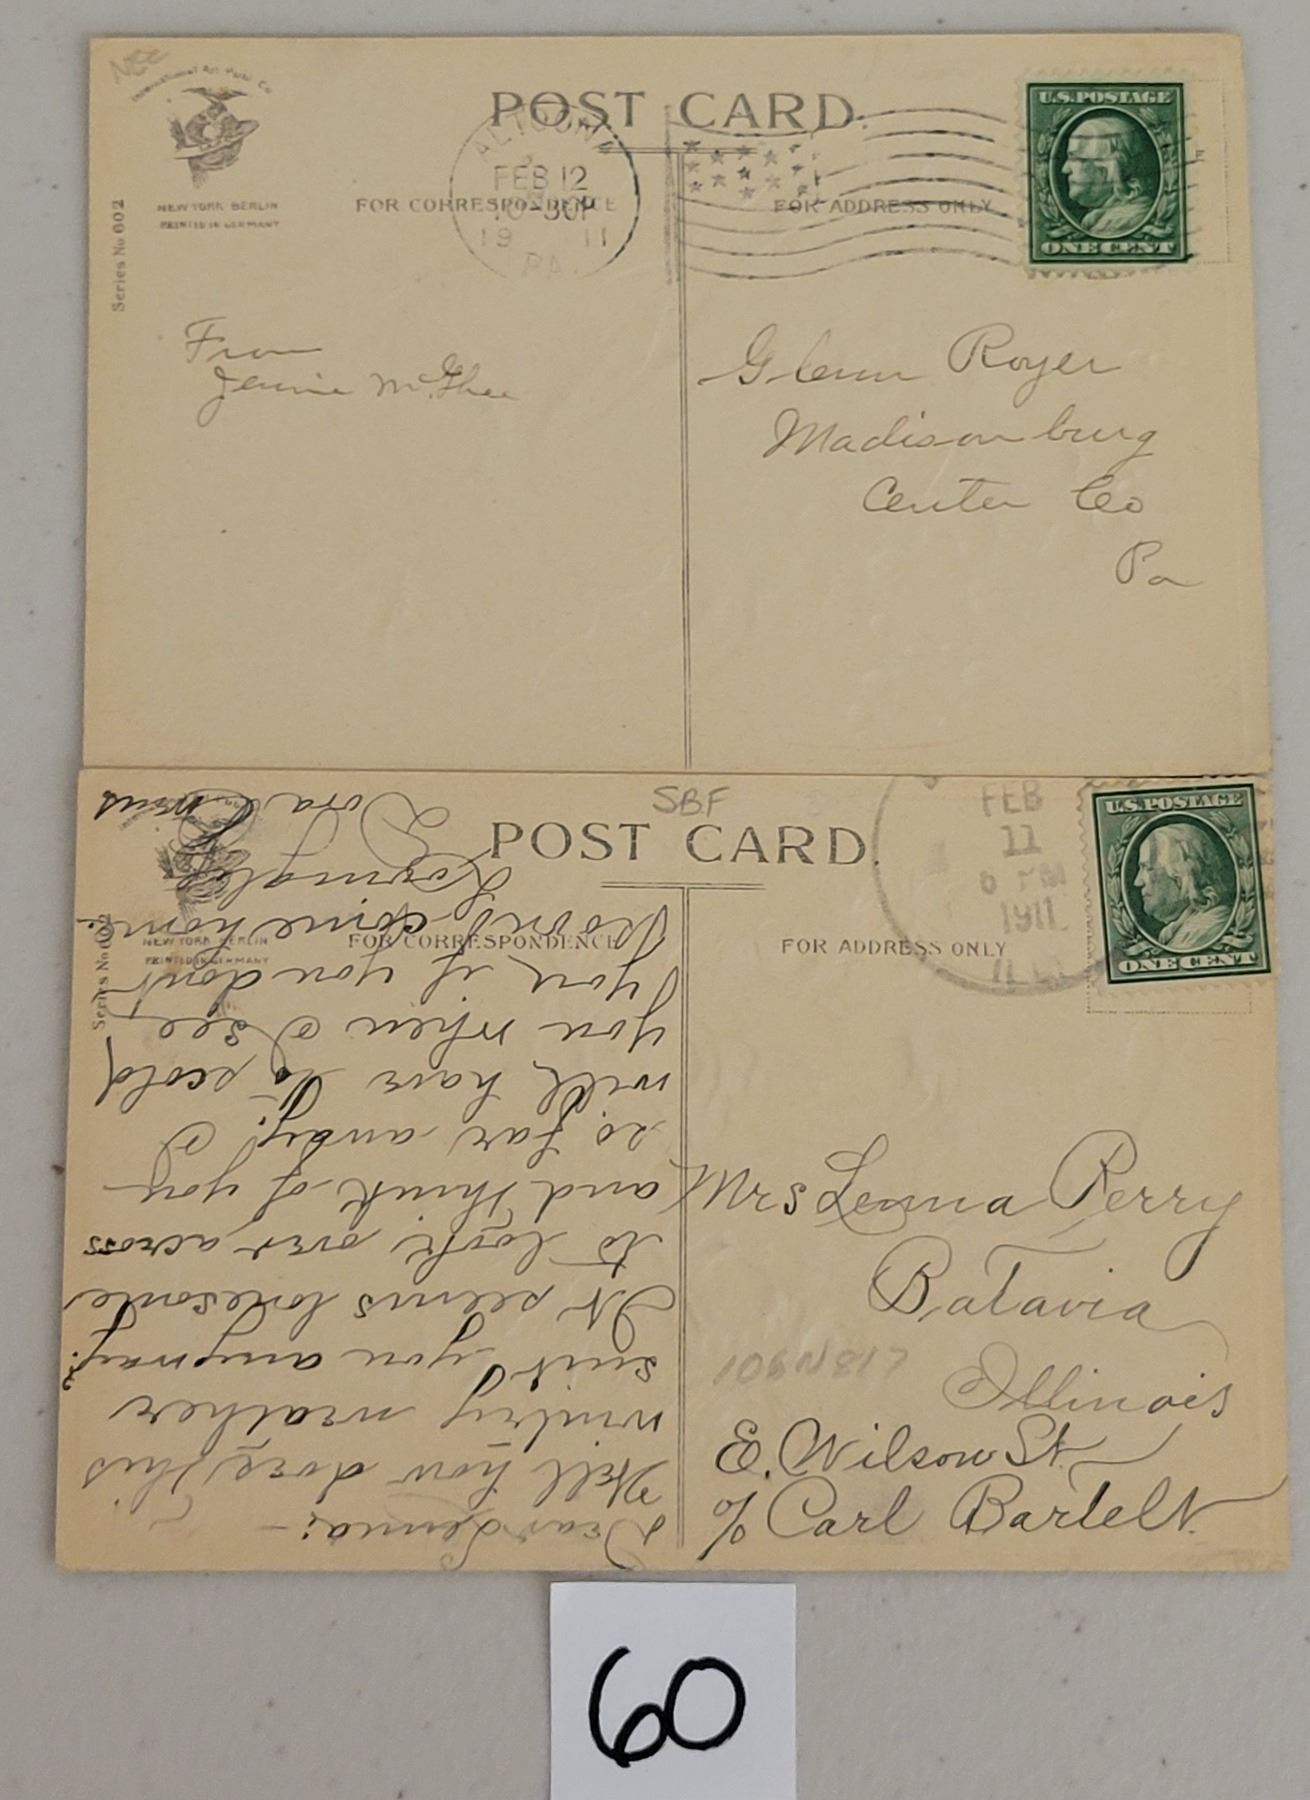 International Art Publ. Co.
NEW YORK BERLIN
PRINTED IN GERMANY
Series No 602
POST CARD.
FOR CORRESPONDENCE
FOR ADDRESS ONLY
ALTOONA
FEB 12
10-30P
19 11
PA.
U.S. POSTAGE
ONE CENT
From
Jennie McGhee
Glenn Royer
Madisonburg
Center Co
Pa
SBF
POST CARD.
NEW YORK BERLIN
PRINTED IN GERMANY
Series No 602
FOR CORRESPONDENCE
FOR ADDRESS ONLY
FEB
11
6 PM
1911
ILL.
U.S. POSTAGE
ONE CENT
Dear Lenna:-
Well how does this
wintry weather
suit you anyway?
It seems lonesome
to look over across
and think of you
so far away. I
will have to scold
you when I see
you, if you don't
soon come home.
Lovingly
Dora
Mrs Lenna Perry
Batavia
Illinois
106N817
E. Wilson St.
c/o Carl Bartelt.
60